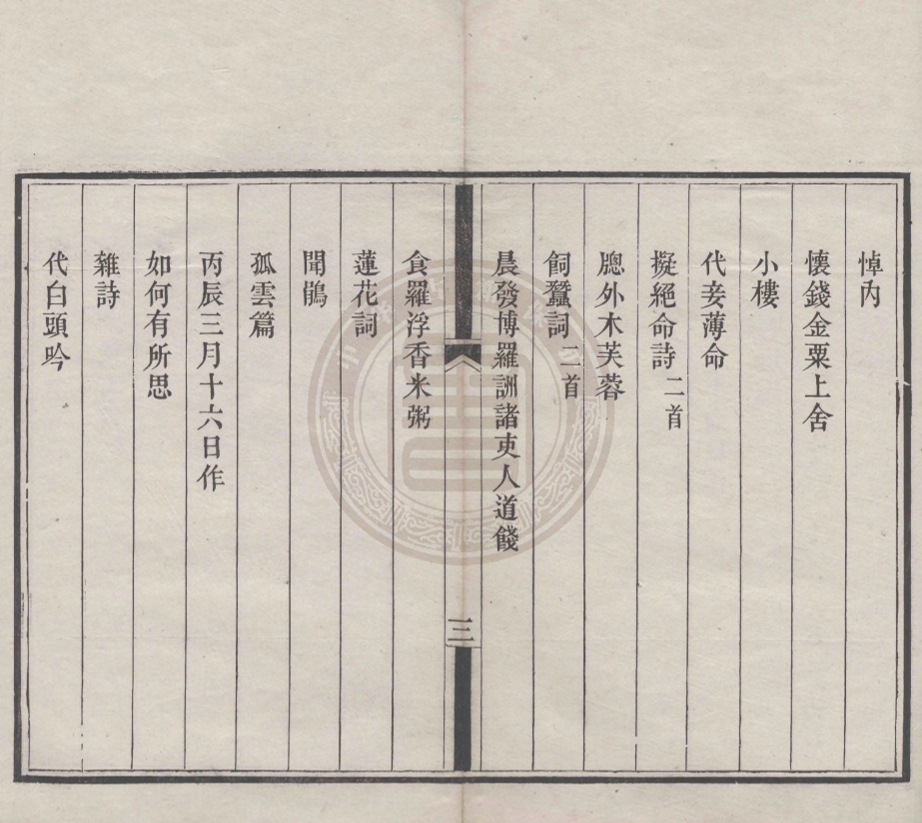 悼內
懷錢金粟上舍
小樓
代妾薄命
擬絕命詩二首
牕外木芙蓉
飼蠶詞二首
晨發博羅詶諸吏人道餞
三
食羅浮香米粥
蓮花詞
聞鵑
孤雲篇
丙辰三月十六日作
如何有所思
雜詩
代白頭吟